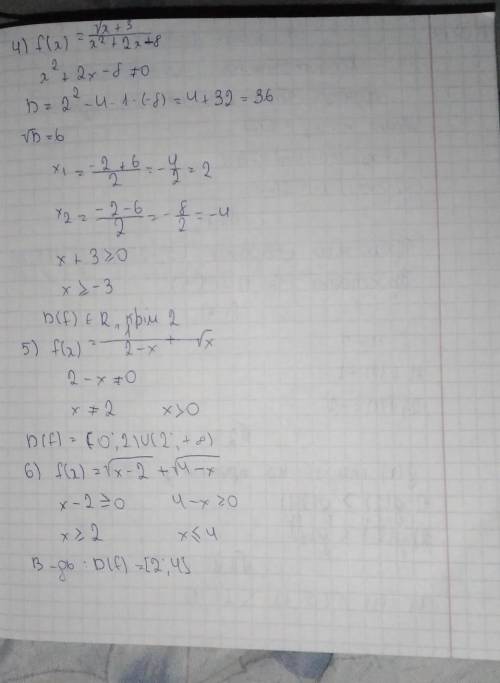 4) f(x) = √x+3 / x²+2x-8
x²+2x-8≠0
D = 2² - 4 · 1 · (-8) = 4+32 = 36
√D = 6
x₁ = -2+6 / 2 = -4/2 = 2
x₂ = -2-6 / 2 = -8/2 = -4
x + 3 ≥ 0
x ≥ -3
D(f) ∈ R, крім 2
5) f(x) = 1 / 2-x + √x
2-x ≠ 0
x ≠ 2 x ≥ 0
D(f) = [0; 2)∪(2; +∞)
6) f(x) = √x-2 + √4-x
x-2 ≥ 0 4-x ≥ 0
x ≥ 2 x ≤ 4
В-дь: D(f) = [2; 4]